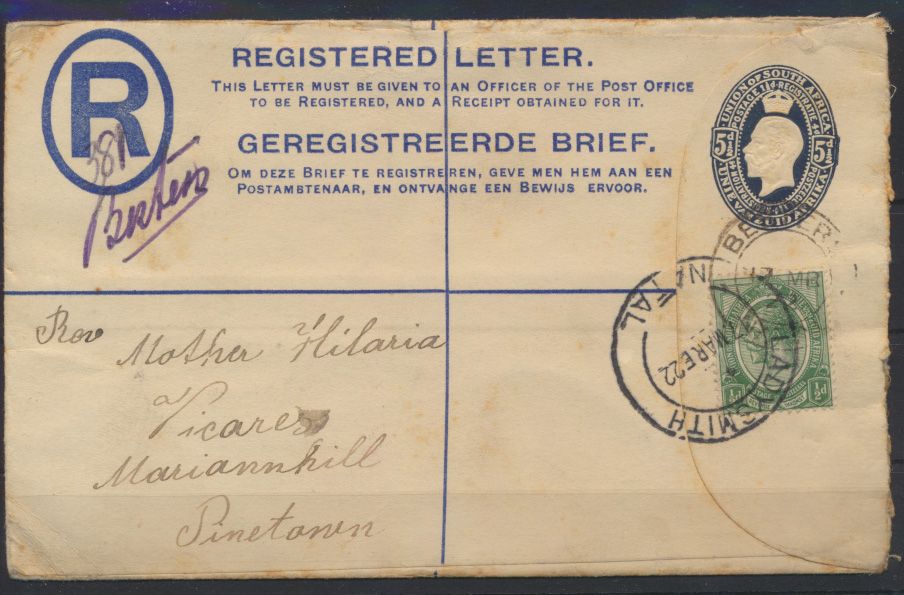 R
REGISTERED LETTER.
THIS LETTER MUST BE GIVEN TO AN OFFICER OF THE POST OFFICE
TO BE REGISTERED, AND A RECEIPT OBTAINED FOR IT.
GEREGISTREERDE BRIEF.
OM DEZE BRIEF TE REGISTREREN, GEVE MEN HEM AAN EEN
POSTAMBTENAAR, EN ONTVANGE EEN BEWIJS ERVOOR.
381
UNION OF SOUTH AFRICA
5½d 5½d
UNIE VAN ZUID AFRIKA
NATAL
LADYSMITH
MAR E 22
½d ½d
Rev Mother Hilaria
Vicaress
Mariannhill
Pinetown